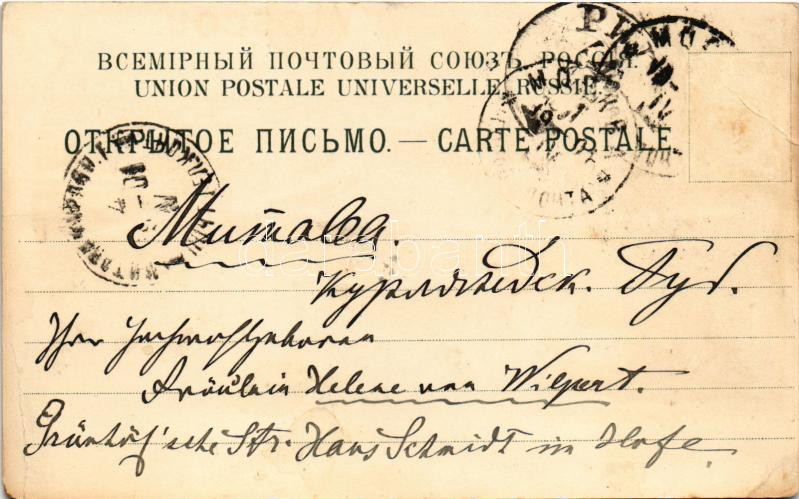 ВСЕМІРНЫЙ ПОЧТОВЫЙ СОЮЗЪ. РОССІЯ.
UNION POSTALE UNIVERSELLE. RUSSIE.
ОТКРЫТОЕ ПИСЬМО. — CARTE POSTALE.
Митава.
Курляндск. Губ.
Ihrer Hochwohlgeboren
Fräulein Helene von Wilpert.
Grünhöf'sche Str. Haus Schmidt im Hofe.
darabanth